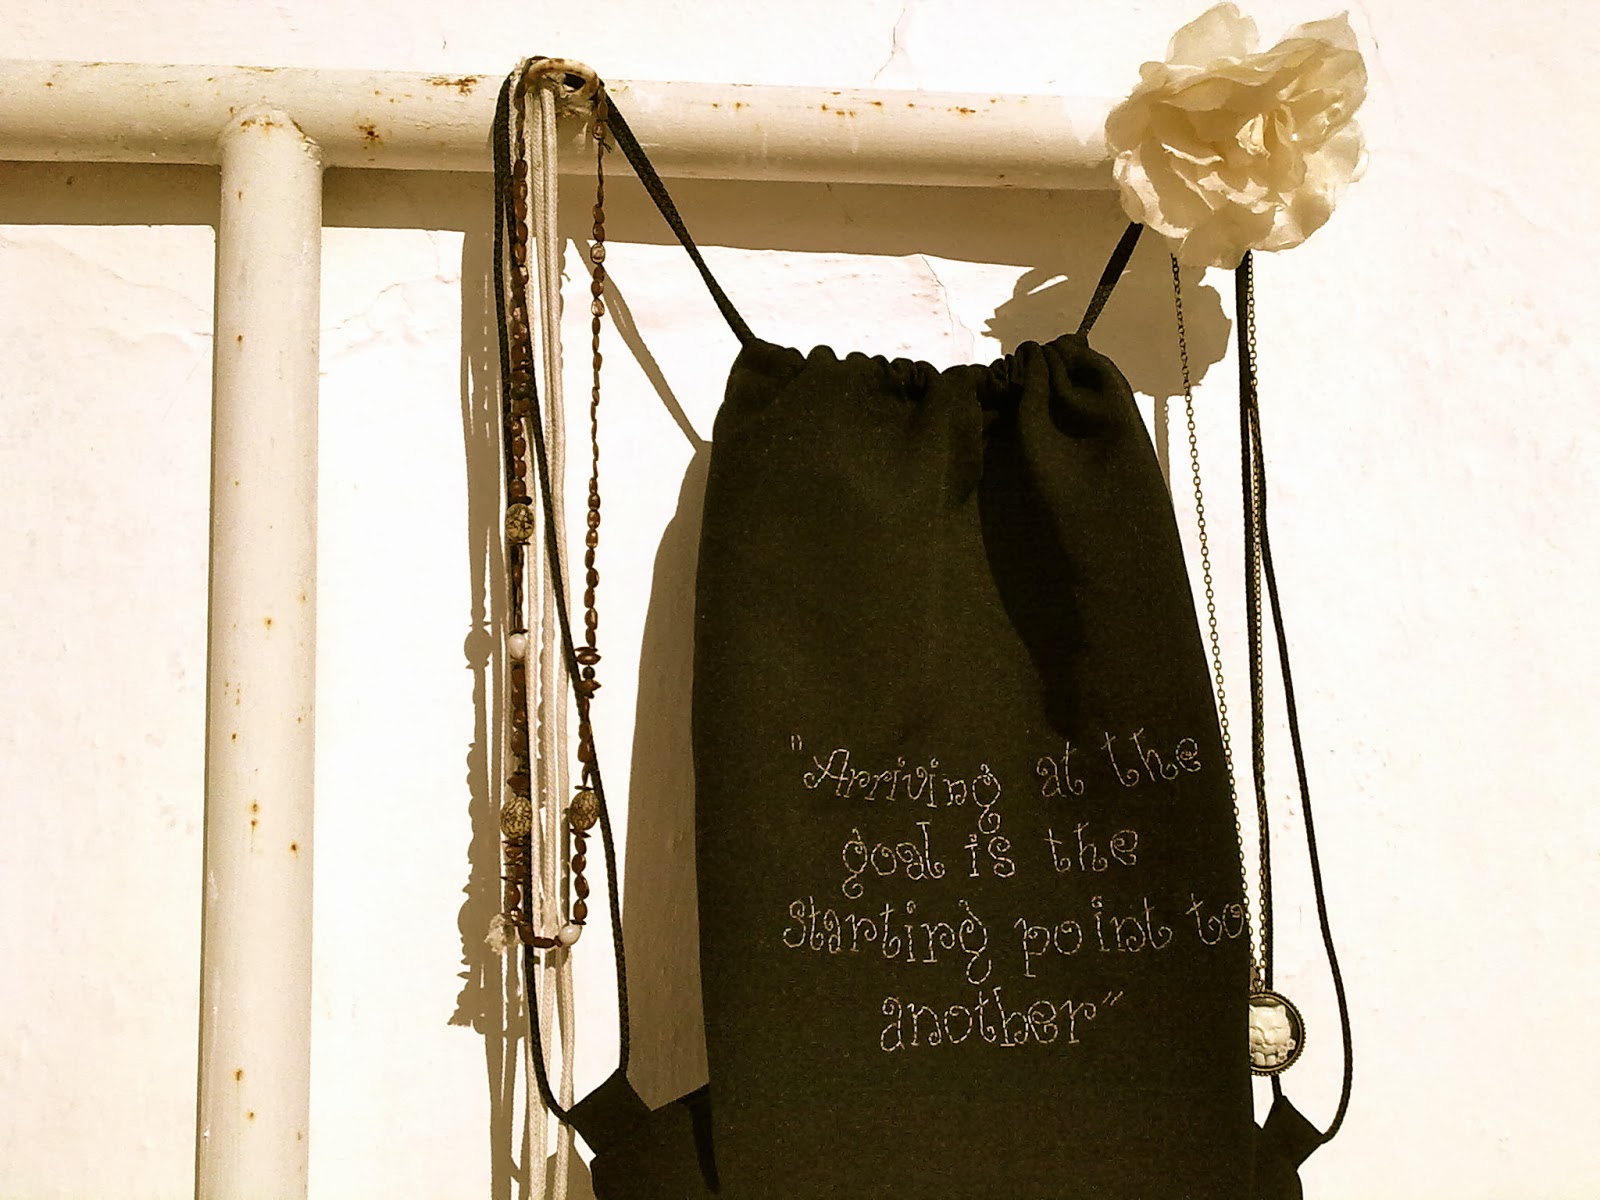 "Arriving at the
goal is the
starting point to
another"